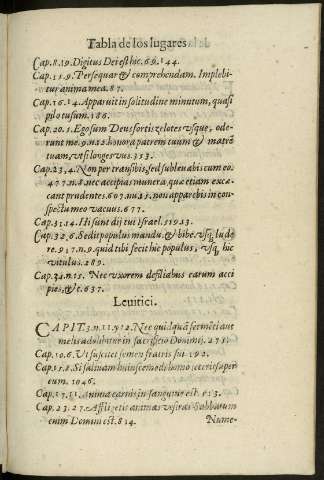 Tabla de los lugares
Cap. 8. 19. Digitus Dei est hic. 69. 144.
Cap. 15. 9. Persequar & comprehendam. Implebi-
tur anima mea. 87.
Cap. 16. 14. Apparuit in solitudine minutum, quasi
pilo tusum. 186.
Cap. 20. 5. Ego sum Deus fortis zelotes vsque, ode-
runt me. 9. n. 12. honora patrem tuum & matrē
tuam, vt sis longeuus. 313.
Cap. 23. 4. Non per transibis, sed subleuabis cum eo.
477. n. 8. nec accipias munera, quæ etiam excæ-
cant prudentes. 607. nu. 15. non apparebis in con-
spectu meo vacuus. 677.
Cap. 32. 4. Hi sunt dij tui Israel. 519. 23.
Cap. 32. 6. Sedit populus mandu. & bibe. vsq; lude
re. 917. n. 9. quid tibi fecit hic populus, vsq; hic
vitulus. 289.
Cap. 34. n. 15. Nec vxorem de filiabus earum acci
pies, &c. 637.
Leuitici.
CAPIT. 2. n. 11. y 12. Nec quidquā fermēti aut
melis adolebitur in sacrificio Domini. 271.
Cap. 10. 6. Vt suscitet semen fratris sui. 192.
Cap. 15. 8. Si saliuam huiuscemodi homo iecerit super
eum. 1046.
Cap. 17. 11. Anima carnis in sanguine est. 913.
Cap. 23. 27. Affligetis animas vestras Sabbatum
enim Domini est. 834.
Nume-